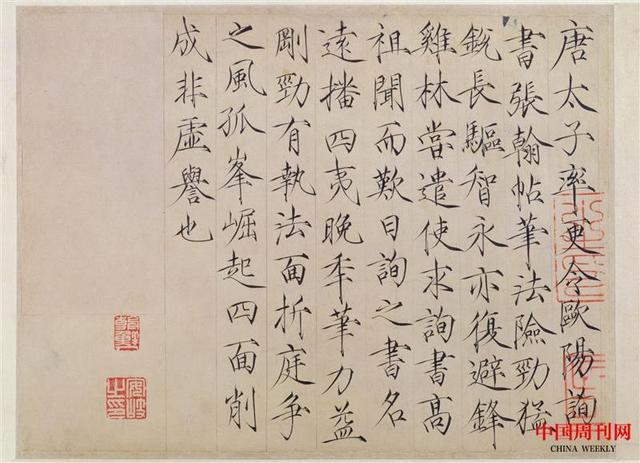 唐太子率更令歐陽詢
書張翰帖筆法險勁猛
銳長驅智永亦復避鋒
雞林嘗遣使求詢書高
祖聞而歎曰詢之書名
遠播四夷晚秊筆力益
剛勁有執法面折庭争
之風孤峯崛起四面削
成非虛譽也
安岐之印
中国周刊网
CHINA WEEKLY